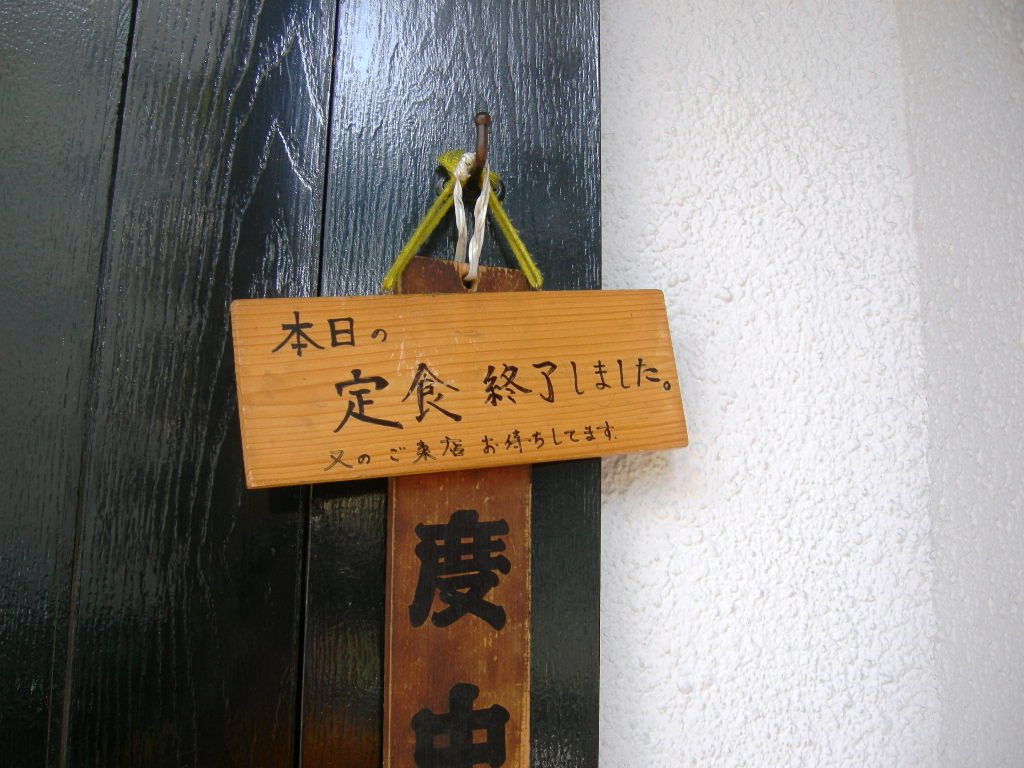 本日の
定食 終了しました。
又のご来店お待ちしてます.
度中